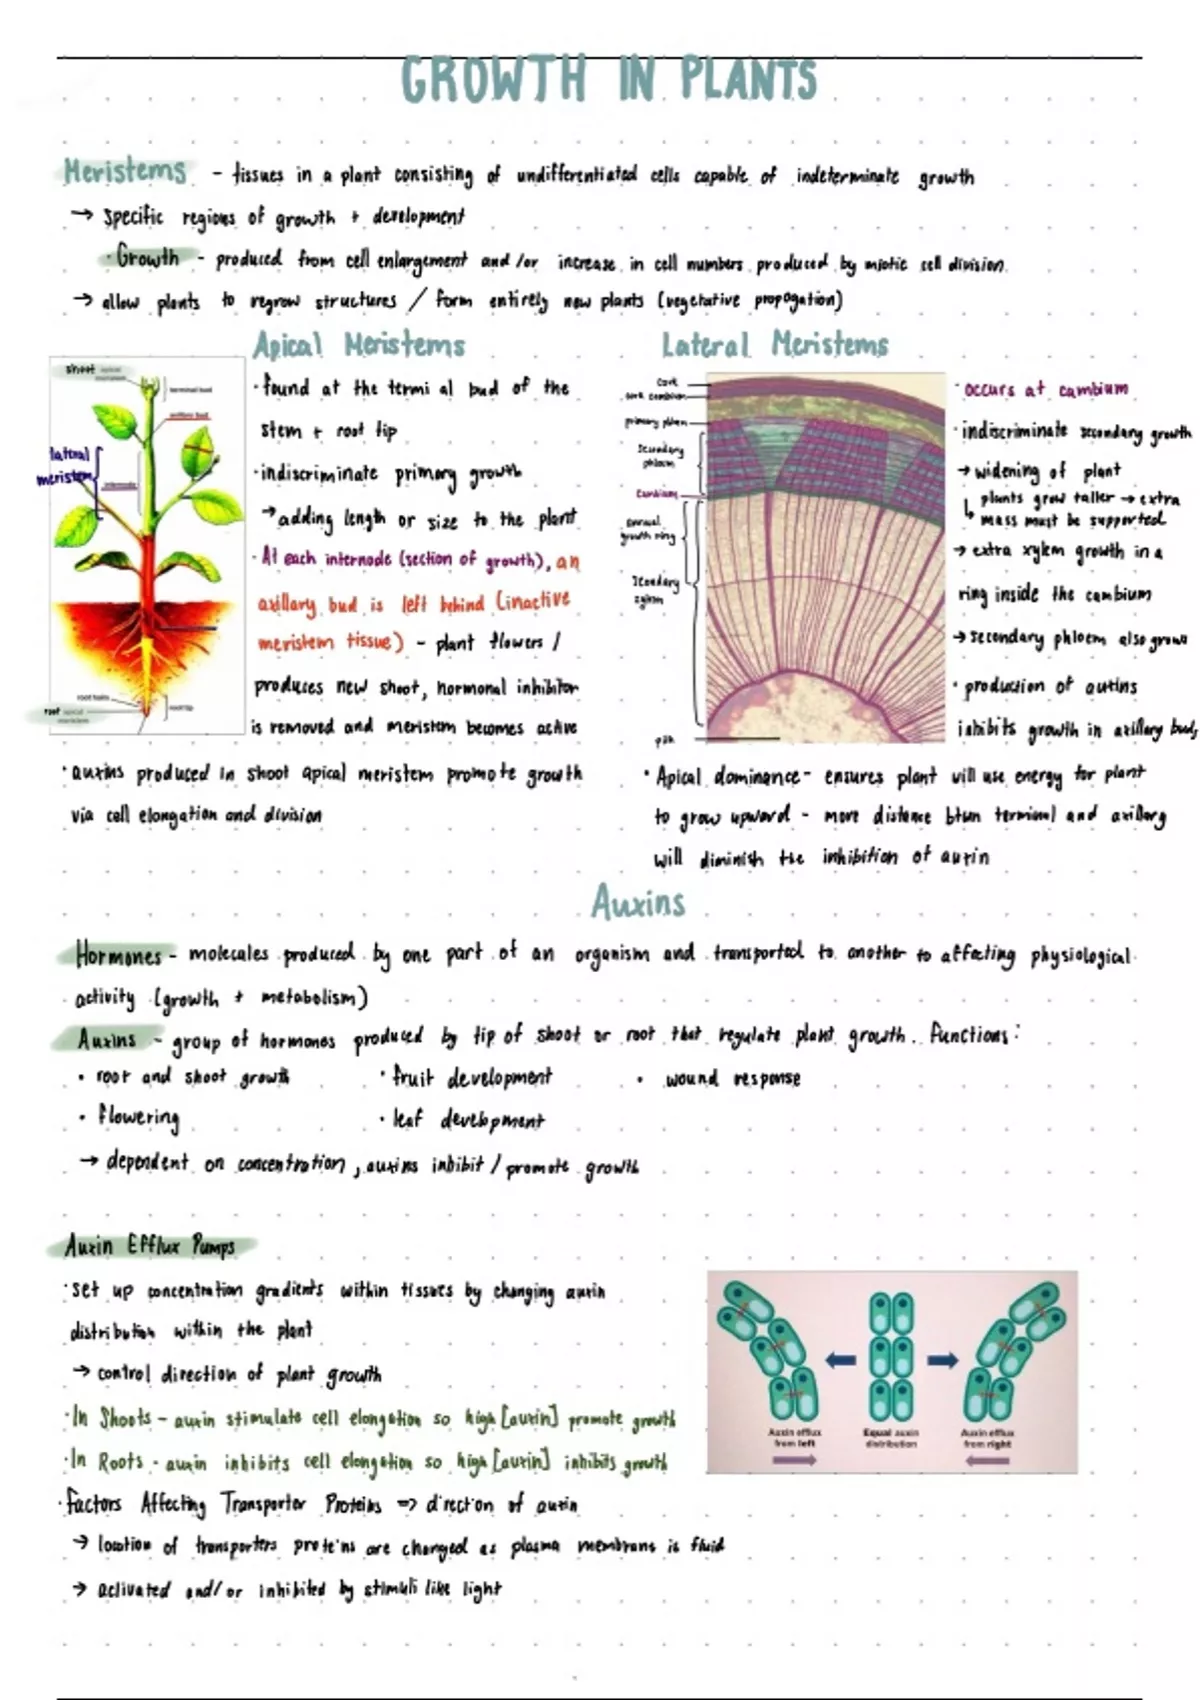 GROWTH IN PLANTS
Meristems - tissues in a plant consisting of undifferentiated cells capable of indeterminate growth
→ specific regions of growth + development
· Growth - produced from cell enlargement and/or increase in cell numbers produced by miotic cell division.
→ allow plants to regrow structures / form entirely new plants (vegetative propogation)
Apical Meristems
shoot apical meristem
terminal bud
axillary bud
lateral meristem
internode
root hairs
root tip
root apical meristem
· found at the termi al bud of the
stem + root tip
· indiscriminate primary growth
→ adding length or size to the plant
· At each internode (section of growth), an
axillary bud is left behind (inactive
meristem tissue) - plant flowers /
produces new shoot, hormonal inhibitor
is removed and meristem becomes active
· auxins produced in shoot apical meristem promote growth
via cell elongation and division
Lateral Meristems
Cork
cork cambium
primary phloem
Secondary phloem
Cambium
annual growth ring
Secondary xylem
pith
· occurs at cambium
· indiscriminate secondary growth
→ widening of plant
↳ plants grow taller → extra
mass must be supported
→ extra xylem growth in a
ring inside the cambium
→ secondary phloem also grows
· production of auxins
inhibits growth in axillary buds
· Apical dominance - ensures plant will use energy for plant
to grow upward - more distance btwn terminal and axillary
will diminish the inhibition of auxin
Auxins
Hormones - molecules produced by one part of an organism and transported to another to affecting physiological
activity (growth + metabolism)
Auxins - group of hormones produced by tip of shoot or root that regulate plant growth. functions:
· root and shoot growth · fruit development · wound response
· flowering · leaf development
→ dependent on concentration, auxins inhibit / promote growth
Auxin Efflux Pumps
· set up concentration gradients within tissues by changing auxin
distribution within the plant
→ control direction of plant growth
· In Shoots - auxin stimulate cell elongation so high [auxin] promote growth
· In Roots - auxin inhibits cell elongation so high [auxin] inhibits growth
· Factors Affecting Transporter Proteins => direction of auxin
→ location of transporters proteins are changed as plasma membrane is fluid
→ activated and/or inhibited by stimuli like light
Auxin efflux from left
Equal auxin distribution
Auxin efflux from right